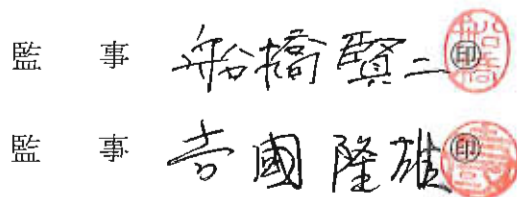 監 事 船橋賢二 ㊞
監 事 吉國隆雄 ㊞